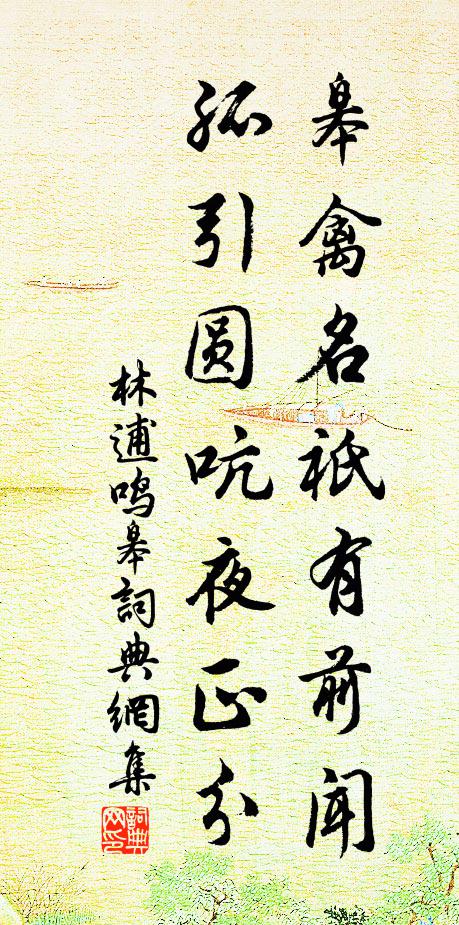 皋禽名祇有前闻
孤引圆吭夜正分
林逋鸣皋詞典網集
詞典
网印